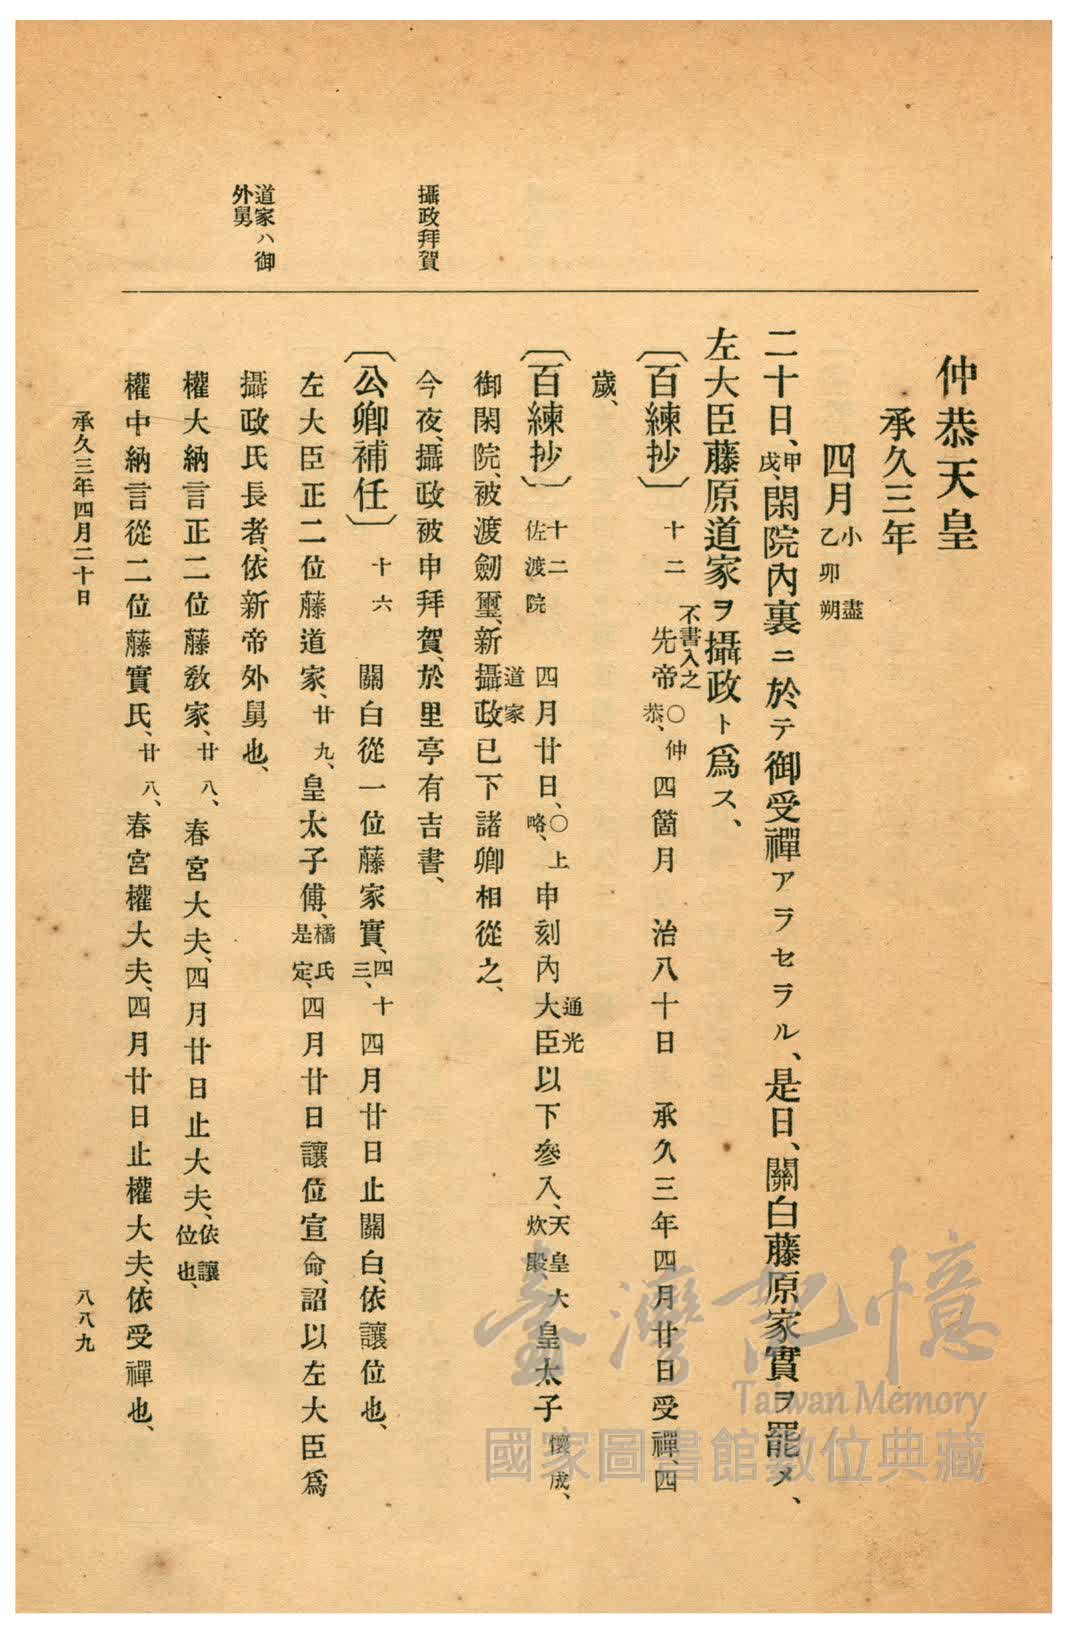 仲恭天皇
承久三年
四月小盡乙卯朔
二十日、甲戌、閑院內裏ニ於テ御受禪アラセラル、是日、關白藤原家實ヲ罷メ、
左大臣藤原道家ヲ攝政ト爲ス、
〔百練抄〕十二 不書入之先帝〇仲恭、四箇月 治八十日 承久三年四月廿日受禪、四
歲、
〔百練抄〕十二佐渡院 四月廿日、〇上略、申刻內大臣通光以下參入、天皇大炊殿、皇太子懷成、
御閑院、被渡劒璽、新攝政道家已下諸卿相從之、
今夜、攝政被申拜賀、於里亭有吉書、
〔公卿補任〕十六 關白從一位藤家實、四十三、四月廿日止關白、依讓位也、
左大臣正二位藤道家、廿九、皇太子傅、橘氏是定、四月廿日讓位宣命、詔以左大臣爲
攝政氏長者、依新帝外舅也、
權大納言正二位藤敎家、廿八、春宮大夫、四月廿日止大夫、依讓位也、
權中納言從二位藤實氏、廿八、春宮權大夫、四月廿日止權大夫、依受禪也、
攝政拜賀
道家ハ御外舅
承久三年四月二十日
八八九
臺灣記憶
Taiwan Memory
國家圖書館數位典藏